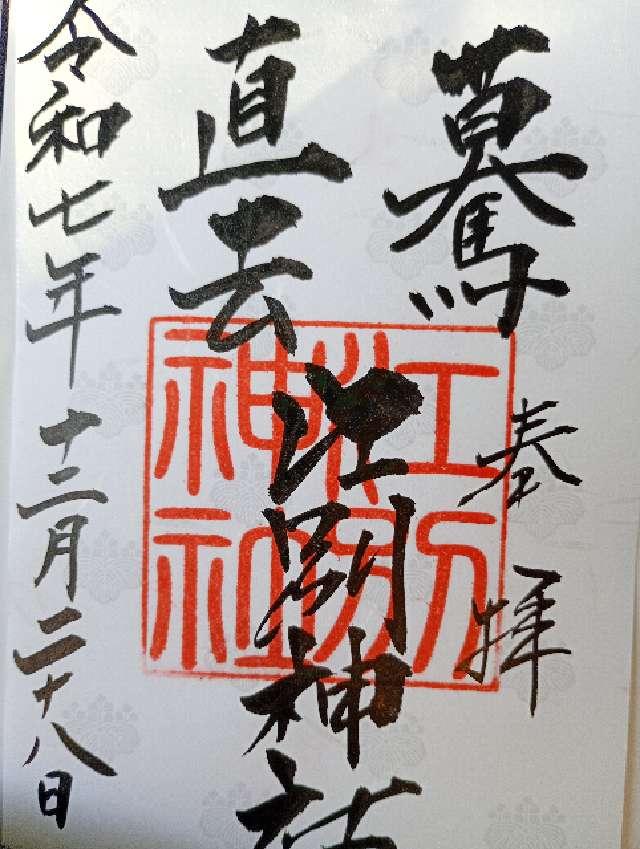 驀
奉拝
直去
江別神社
江別神社
令和七年十二月二十八日